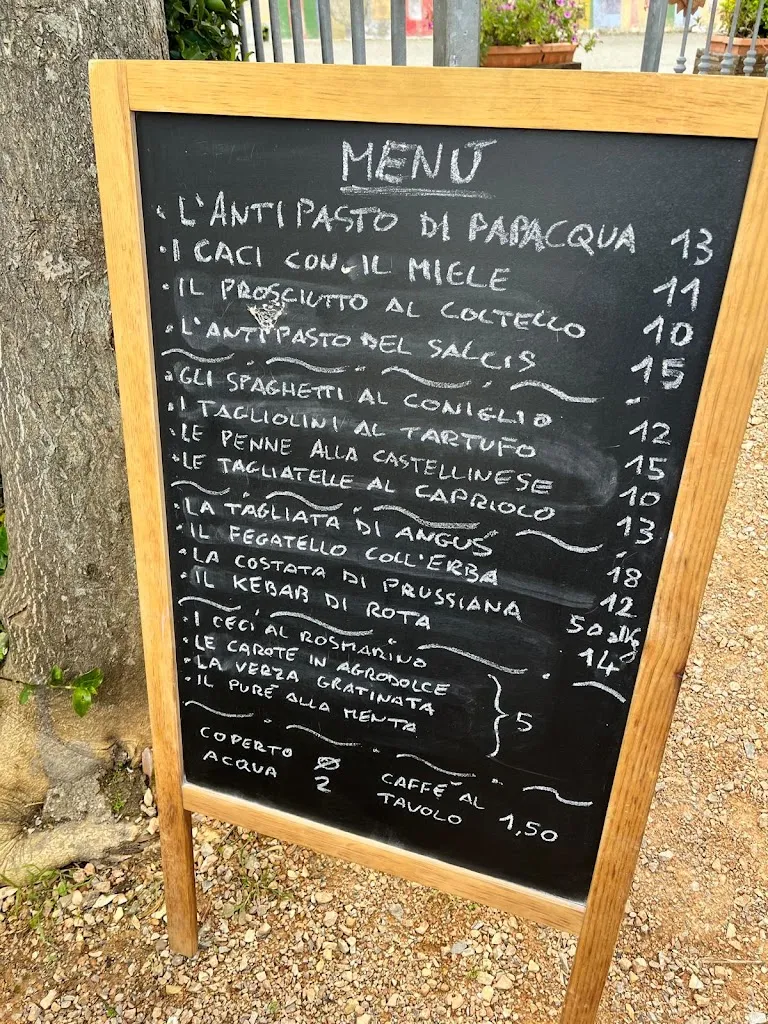 MENÚ
· L'ANTIPASTO DI PAPACQUA 13
· I CACI CON IL MIELE 11
· IL PROSCIUTTO AL COLTELLO 10
· L'ANTIPASTO DEL SALCIS 15
· GLI SPAGHETTI AL CONIGLIO 12
· I TAGLIOLINI AL TARTUFO 15
· LE PENNE ALLA CASTELLINESE 10
· LE TAGLIATELLE AL CAPRIOLO 13
· LA TAGLIATA DI ANGUS 18
· IL FEGATELLO COLL'ERBA 12
· LA COSTATA DI PRUSSIANA 50 al Kg
· IL KEBAB DI ROTA 14
· I CECI AL ROSMARINO
· LE CAROTE IN AGRODOLCE
· LA VERZA GRATINATA
· IL PURÉ ALLA MENTA
} 5
COPERTO Ø
ACQUA 2
CAFFÉ AL
TAVOLO 1,50